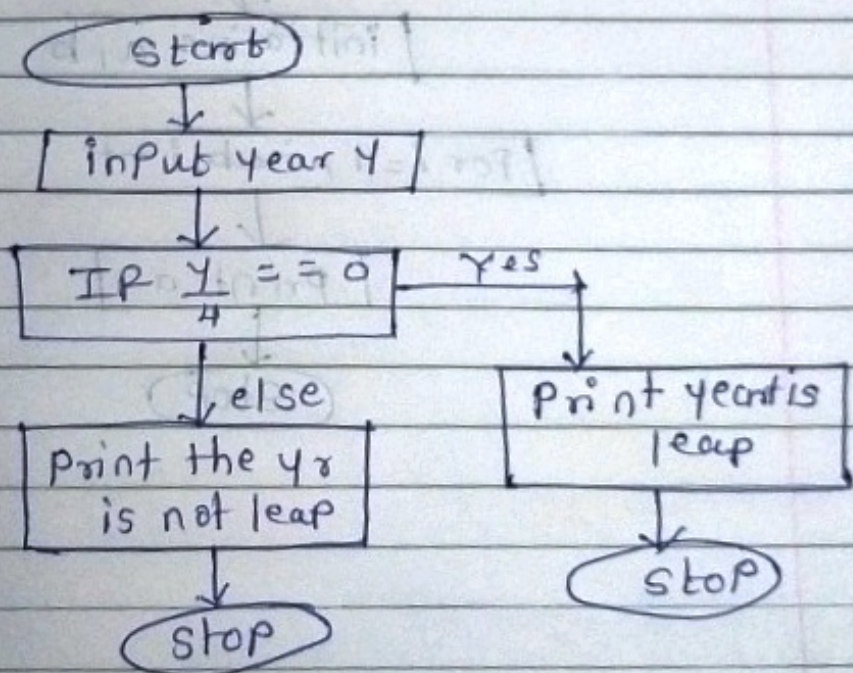 Start
input year Y
IF Y/4 == 0
Yes
else
Print year is
leap
Print the yr
is not leap
Stop
Stop